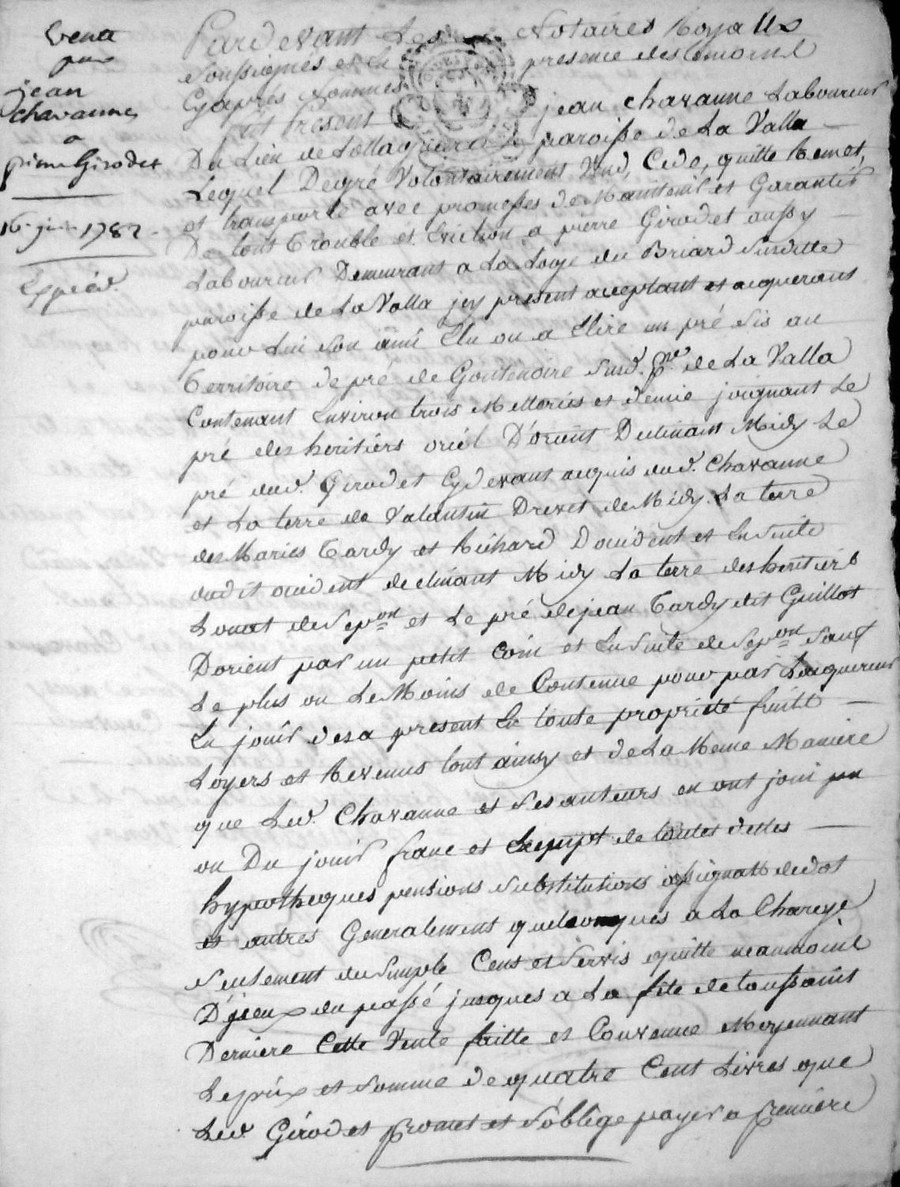 vente
par
jean
chavanne
a
pierre Girodet
16e juin 1782
Expédié
Pardevant Les Notaires Royaux
soussignés et en presence des temoins
Cyaprès nommés
fut Present jean Chavanne Laboureur
Du Lieu de paroisse de La Valla
Lequel De gré Volontairement Vend, Cede, quitte Remet,
et transporte avec promesses de Maintenir et Garantir
De tout trouble et Eviction a pierre Girodet aussy
Laboureur Demeurant a La Loge du Briard Surditte
paroisse de La Valla jcy present acceptant et acquerant
pour Lui son ami Elu ou a Elire un pré sis au
territoire de pré de Gontenoire Susd. pse de La Valla
Contenant Environ trois Metteriés et demie joignant Le
pré des heritiers oriol D'orient Declinant Midy Le
pré dud. Girodet Cydevant acquis dud. Chavanne
et La terre de Valantin Drevet de Midy La terre
des Mariés tardy et Richard D'ocident et Ensuite
dudit ocident declinant Midy La terre des heritiers
Louat de Sepon et Le pré de jean tardy dit Guillot
D'orient par un petit Coin et Ensuite de Sepon Sauf
Le plus ou Le Moins de Contenue pour par Lacquereur
En jouir desa present En toute proprieté fruits
Loyers et Revenus tout ainsy et de La Meme Maniere
que Led. Chavanne et Ses auteurs en ont joui pu
ou Du jouir franc et Exempt de toutes dettes
hypotheques pensions substitutions assignats de dot
et autres Generalement quelconques a La Charge
seulement du Simple Cens et Servis quitte neanmoins
D'jceux du passé jusques a La fête de toussaint
Derniere Cette Vente faitte et Convenue Moyennant
Le prix et somme de quatre Cent Livres que
Led. Girodet promet et s'oblige payer a premiere